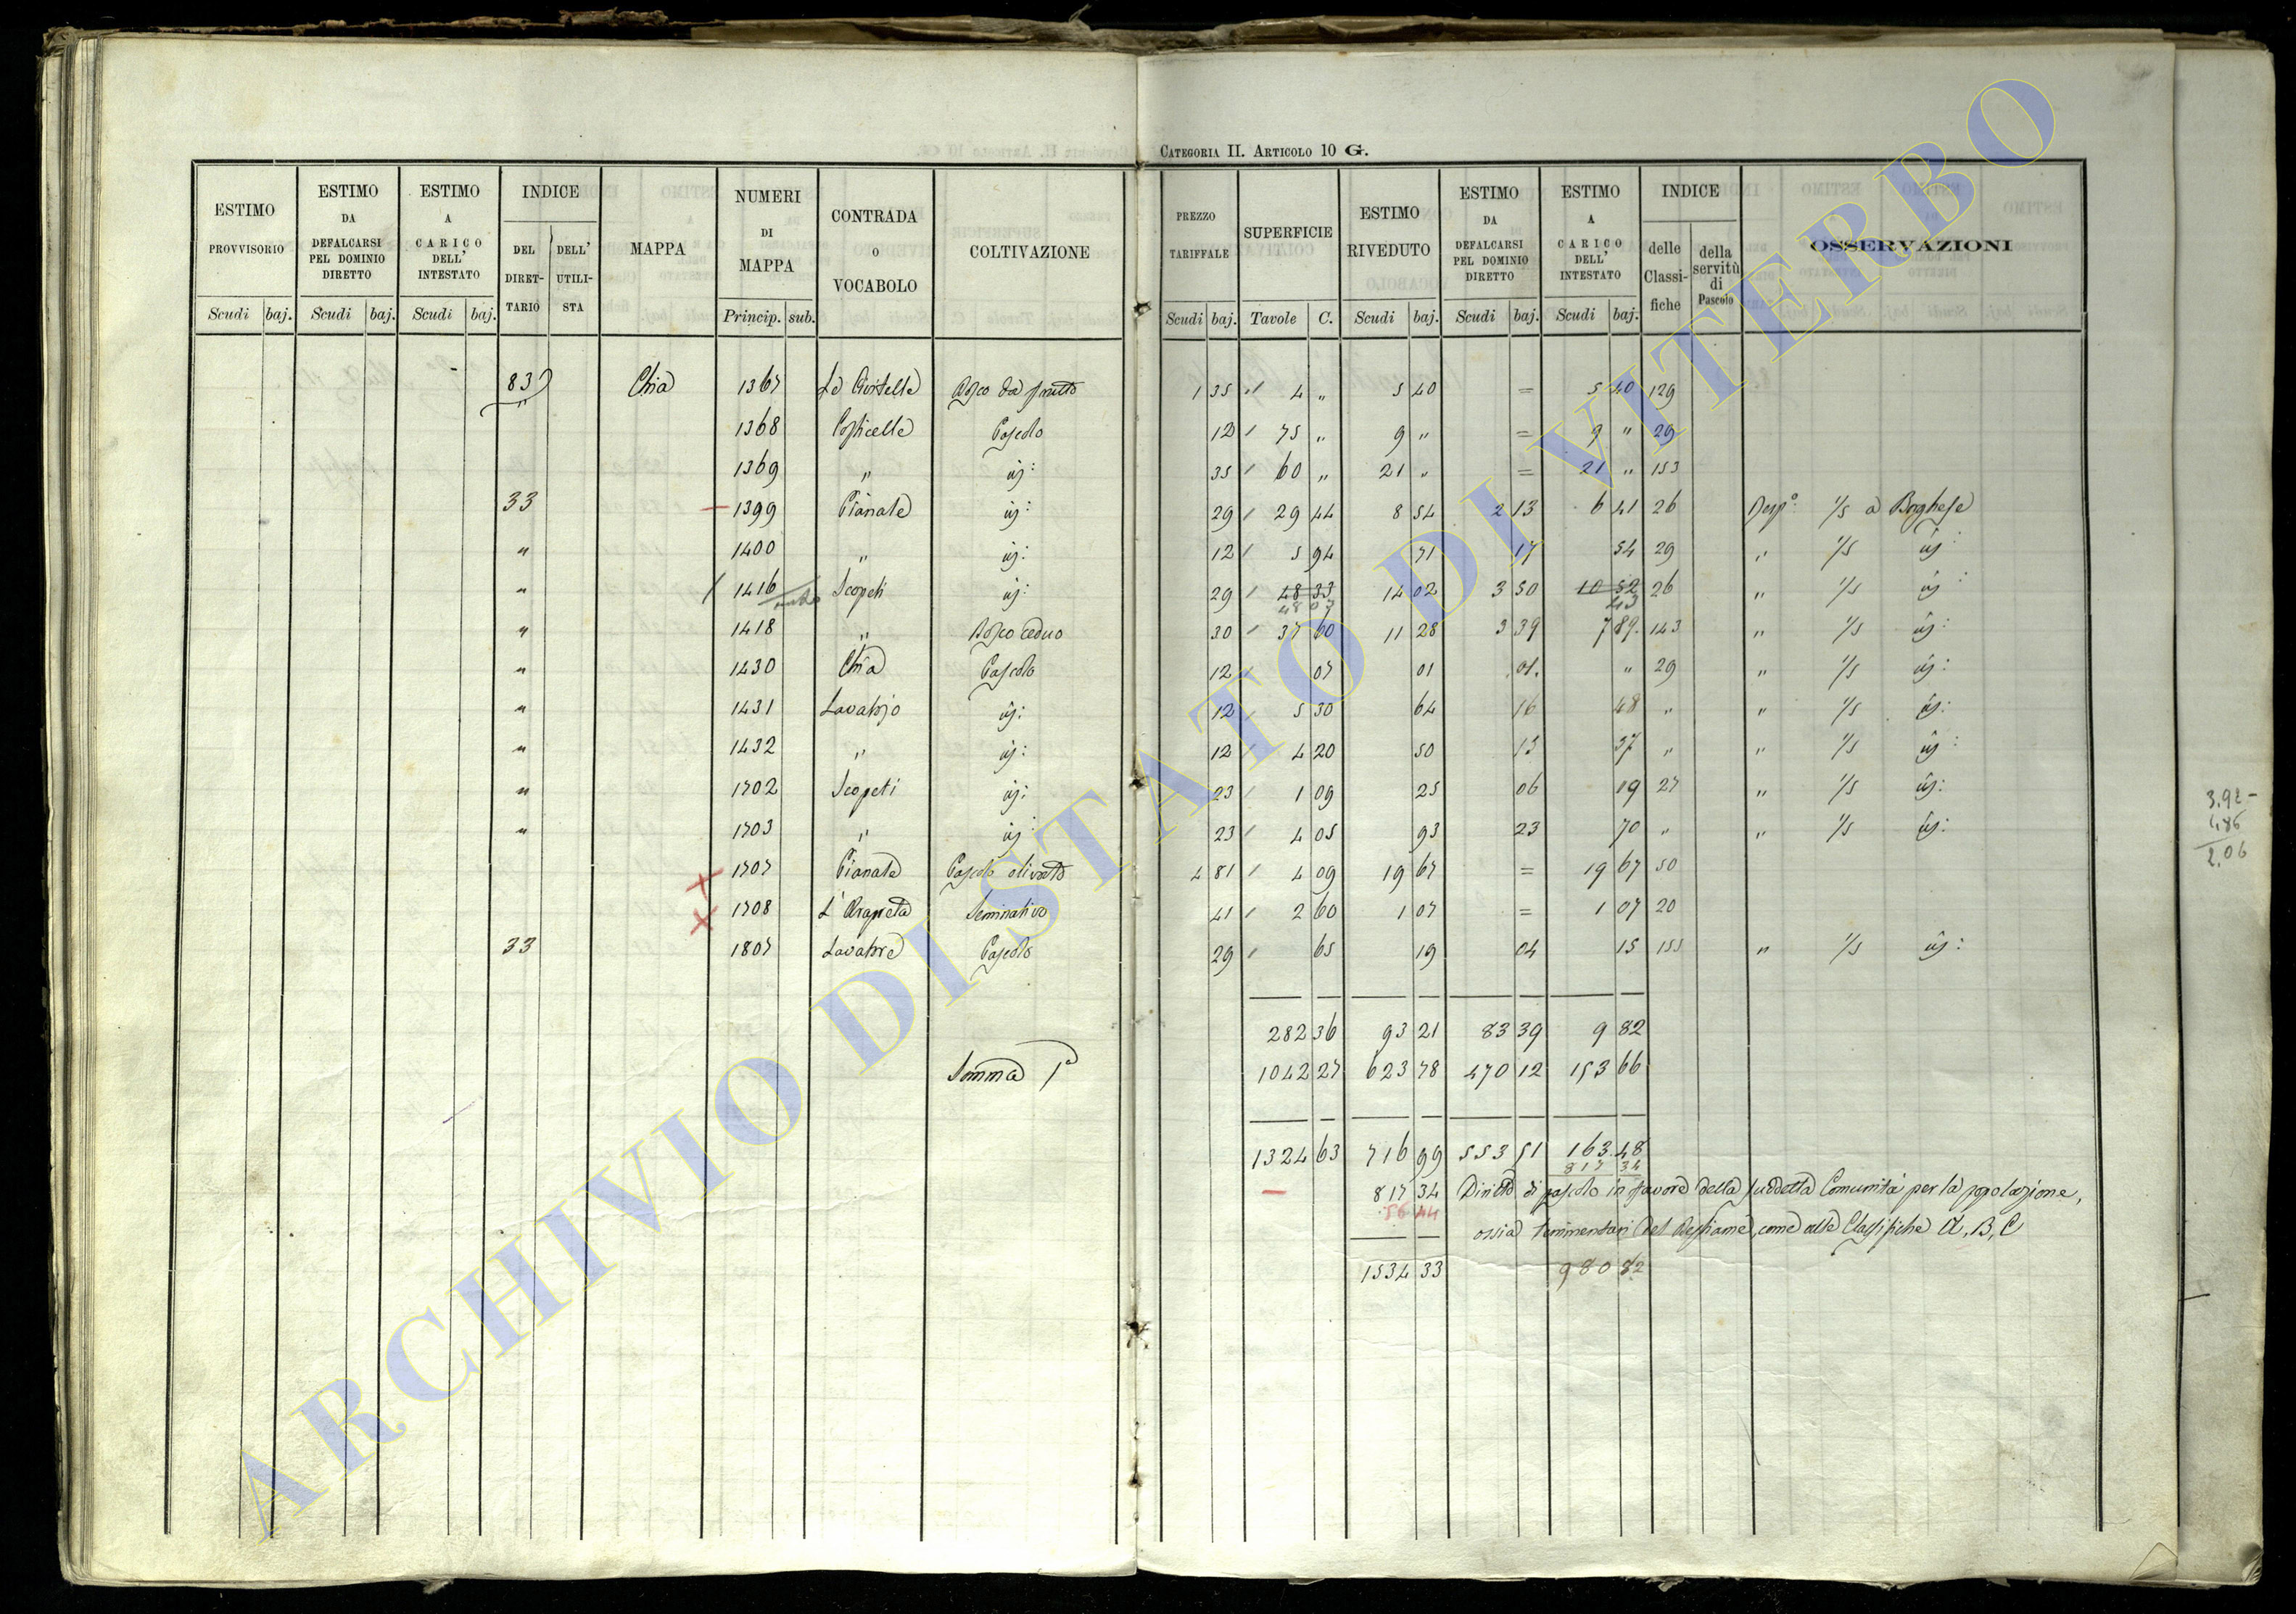 CATEGORIA II. ARTICOLO 10 G.
ESTIMO PROVVISORIO Scudi baj. ESTIMO DA DEFALCARSI PEL DOMINIO DIRETTO Scudi baj. ESTIMO A CARICO DELL' INTESTATO Scudi baj. INDICE DEL DIRETTARIO DELL' UTILISTA MAPPA NUMERI DI MAPPA Princip. sub. CONTRADA O VOCABOLO COLTIVAZIONE PREZZO TARIFFALE Scudi baj. SUPERFICIE Tavole C. ESTIMO RIVEDUTO Scudi baj. ESTIMO DA DEFALCARSI PEL DOMINIO DIRETTO Scudi baj. ESTIMO A CARICO DELL' INTESTATO Scudi baj. INDICE delle Classifiche della servitù di Pascolo OSSERVAZIONI
83 Chia 1367 Bosco da frutto 1 35 4 " 5 40 = 5 40 129
1368 Costicelle Pascolo 12 75 " 9 " = 9 " 29
1369 " id: 35 60 " 21 " = 21 " 153
33 1399 Pianale id: 29 29 44 8 54 2 13 6 41 26 1/5 a Borghese
" 1400 " id: 12 5 94 71 17 54 29 " 1/5 id:
" 1416 Scopeti id: 29 48 33 48 07 14 02 3 50 10 52 43 26 " 1/5 id:
" 1418 " Bosco ceduo 30 37 60 11 28 3 39 7 89 143 " 1/5 id:
" 1430 Chia Pascolo 12 07 01 01 " 29 " 1/5 id:
" 1431 Lavatojo id: 12 5 30 64 16 48 " " 1/5 id:
" 1432 " id: 12 4 20 50 13 37 " " 1/5 id:
" 1702 Scopeti id: 23 1 09 25 06 19 27 " 1/5 id:
" 1703 " id: 23 4 05 93 23 70 " " 1/5 id:
1707 Pianale Pascolo olivato 4 81 4 09 19 67 = 19 67 50
1708 Seminativo 41 2 60 1 07 = 1 07 20
33 1807 Lavatore Pascolo 29 65 19 04 15 155 " 1/5 id:
282 36 93 21 83 39 9 82
Somma 1a 1042 27 623 78 470 12 153 66
1324 63 716 99 553 51 163 48
817 34
817 34 Diritto di pascolo in favore della suddetta Comunità per la popolazione,
56 44 ossia del Bestiame, come alle Classifiche A, B, C
1534 33 980 82
3.92
1.86
2.06
ARCHIVIO DI STATO DI VITERBO